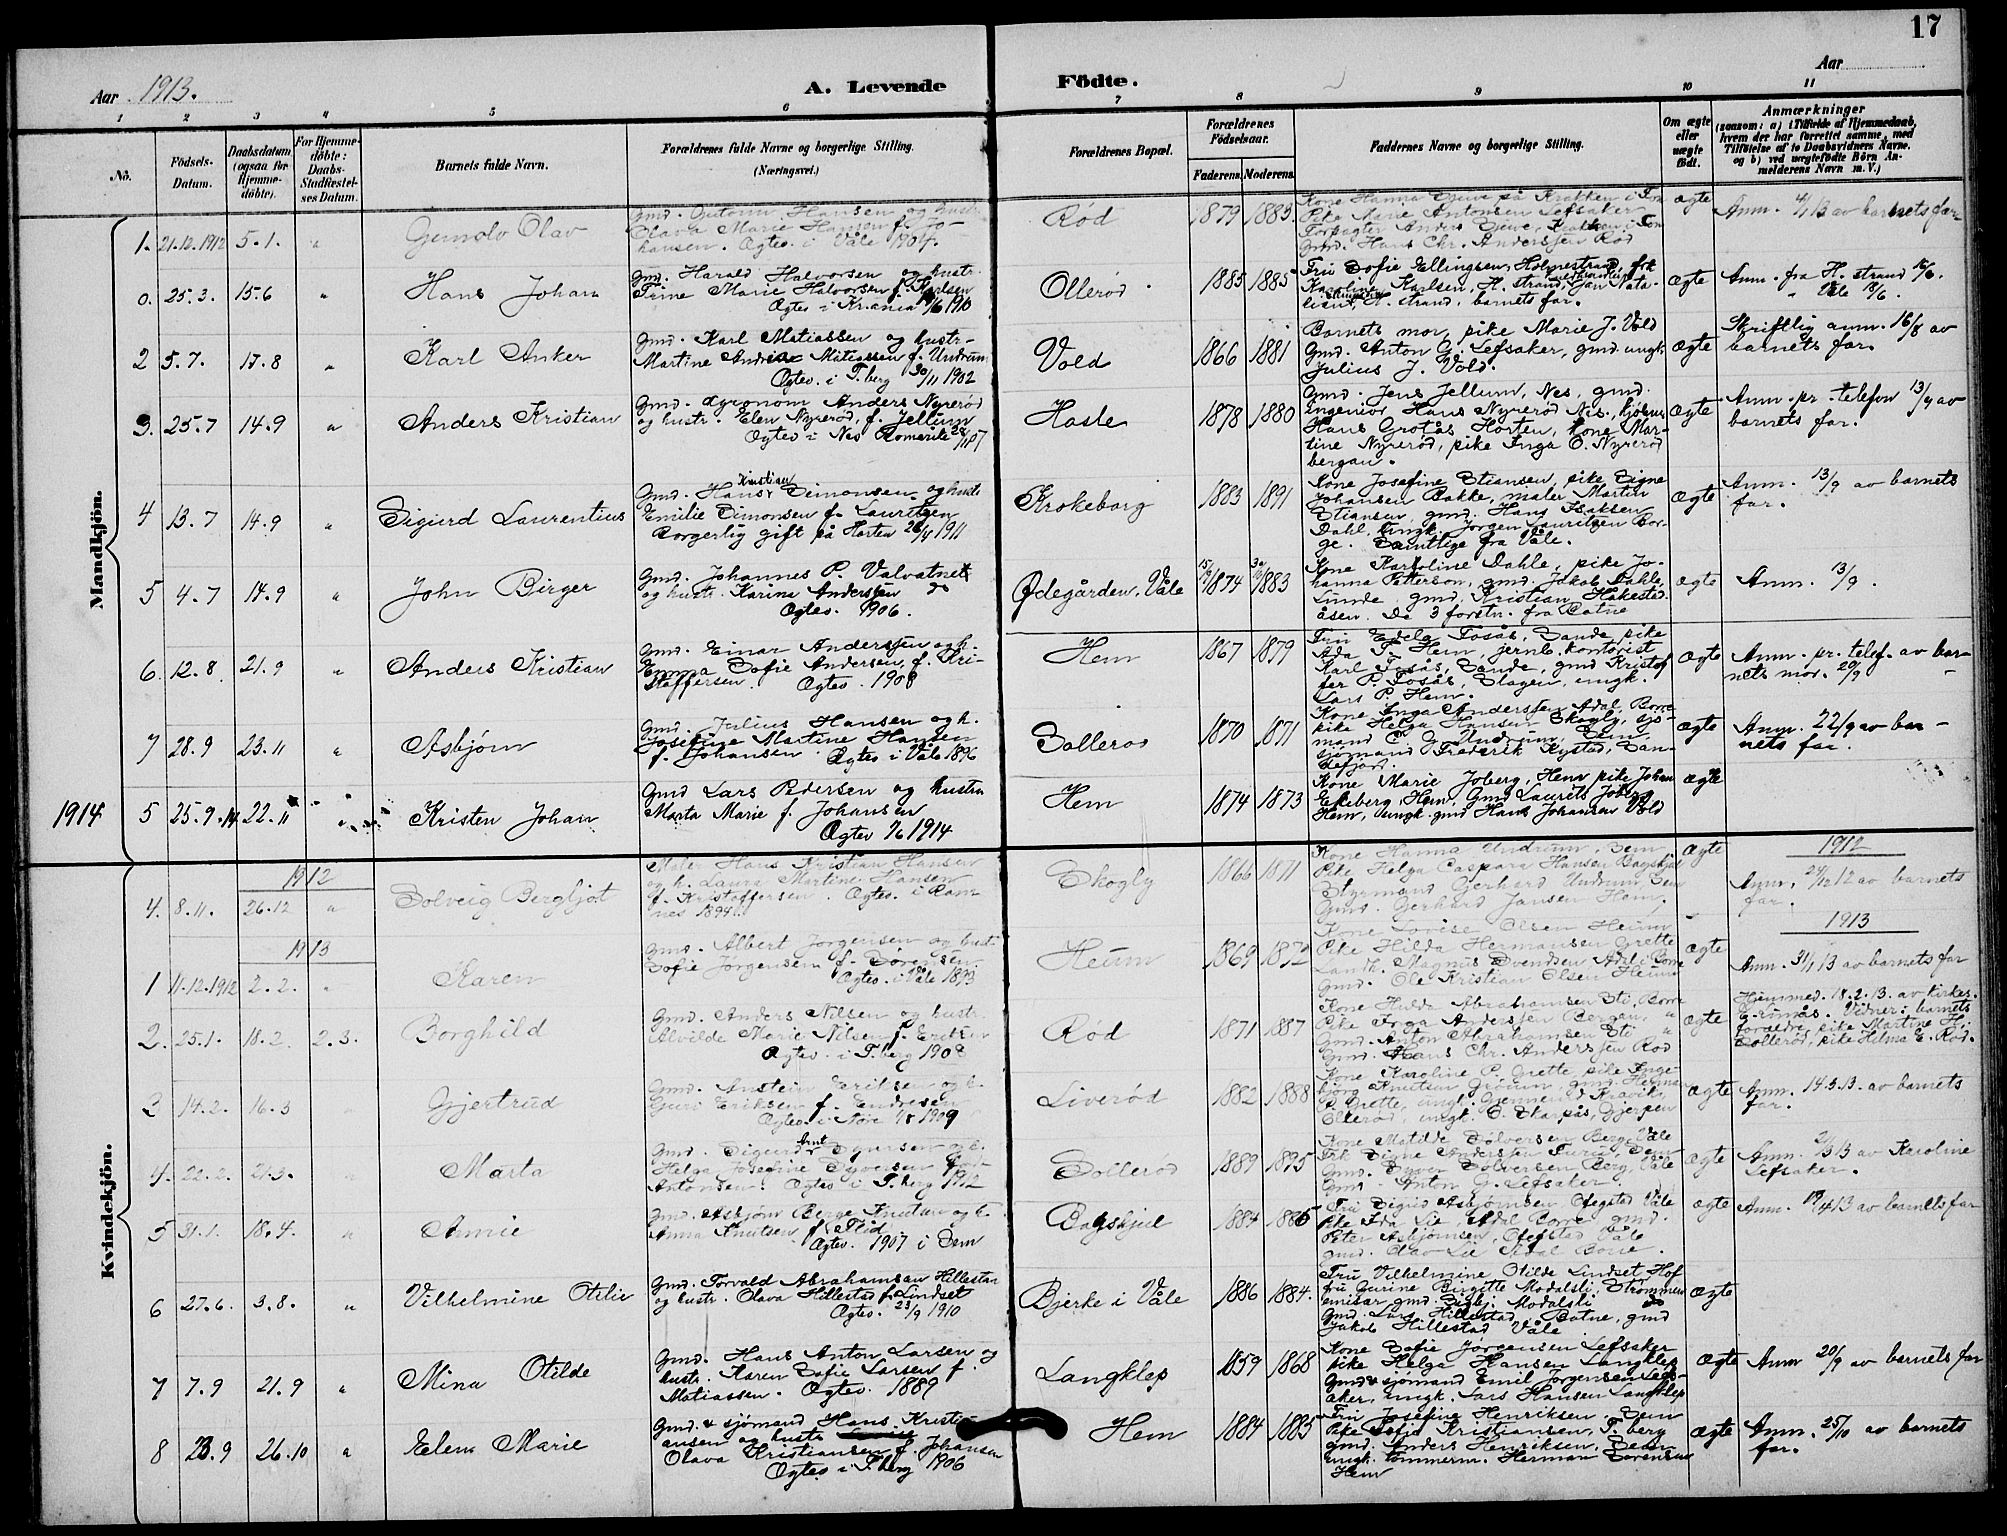 17
Aar 1913.
A. Levende Födte.
Aar
1 2 3 4 5 6 7 8 9 10 11
No.
Födsels-Datum.
Daabsdatum (ogsaa for Hjemme-döbte).
For Hjemme-döbte: Daabs-Stadfæstel-ses Datum.
Barnets fulde Navn.
Forældrenes fulde Navne og borgerlige Stilling. (Næringsvei.)
Forældrenes Bopæl.
Forældrenes Födselsaar.
Faderens. Moderens.
Faddernes Navne og borgerlige Stilling.
Om ægte eller uægte födt.
Anmærkninger
(saasom: a) i Tilfælde af Hjemmedaab,
hvem der har forrettet samme, med
Tilföielse af to Daabsvidners Navne,
og b) ved uægtefödte Börn An-
melderens Navn m. V.)
Mandkjön.
1. 21.10.1912 5.1. "
Olav
Hansen og hustr.
Olava Marie Hansen f. Jo-
hansen. Ogtev. i Våle 1904.
Rød
1879 1883.
Kone Hanna
Pike Marie Antonsen Lefsaker
Forpagter Anders
Gmd. Hans Chr. Anderssen Rød
ægte
Anm. 4/1 13 av barnets far
0. 25.3. 15.6 "
Hans Johan
Gmd. Harald Halvorsen og hustr.
Trine Marie Halvorsen f. Karlsen
Ogtev. i Kr.ania 1910
Ollerød
1885 1885
Fru Sofie Ellingsen, Holmestrand, frk
Karoline Karlsen, H. strand,
H. strand, barnets far.
ægte
Anm. fra H. strand 15/6.
" Våle
2 5.7. 17.8 "
Karl Anker
Gmd. Karl Matiassen og hustr-
Martine Andrea Mitiassen f. Undrum
Ogtev. i T.berg 30/11 1902
Vold
1866 1881
Barnets mor, pike Marie J. Vold
Gmd. Anton G. Lefsaker, gmd. ungk.
Julius J. Vold.
ægte
Skriftlig anm. 16/8 av
barnets far.
3. 25.7 14.9 "
Anders Kristian
Gmd. agronom Anders Nyrerød
og hustr. Elen Nyrerød f. Jellum
Ogtev i Nes Romerike
Hasle
1878 1880
Gmd. Jens Jellum, Nes, gmd.
ingeniør Hans Nyrerød Nes,
Hans Grotås Horten, kone Mar-
tine Nyrerød, pike Inga O. Nyrerød
bergan.
ægte
Anm. pr. telefon 13/9 av
barnets far.
4 13.7 14.9 "
Sigurd Laurentius
Kristian
Gmd. Hans Simonsen og hustr
Emilie Simonsen f. Lauritzen
Borgerlig gift på Horten 1911
Krokeborg
1883 1891
Kone Josefine Stiansen, pike Signe
Johansen Bakke, maler Martin
Stiansen, gmd. Hans Isaksen
Dahl, ungk. Jørgen Lauritzen Bor-
ge. Samtlige fra Våle.
ægte
Anm. 13/9 av barnets
far.
5 4.7 14.9 "
John Birger
Gmd. Johannes P. Valvatnet
og hustr. Karina Anderssen do
Ogtev. 1906.
Ødegården, Våle
15/9 1874 1883
Kone Karoline Dahle, pike Jo-
hanna Petterson, gmd. Jakob Dahle,
Linde, gmd. Kristian Håkestad-
åsen. De 3 førstn. fra Botne
ægte
Anm. 13/9.
6. 12.8. 21.9 "
Anders Kristian
Gmd. Einar Anderssen og h.
Emma Sofie Andersen, f. Kri-
stoffersen. Ogtev. 1908
Hem
1867 1879
Fru Edele Fosås, Sande, pike
Ada P. Hem, jernb. kontorist
Karl Fosås, Sande, gmd Kristof
fer P. Fosås, Slagen, ungk.
Lars P. Hem.
ægte
Anm. pr. telef. av bar-
nets mor. 20/9 -
7 28.9 23.11 "
Asbjørn
Gmd. Julius Hansen og h.
Josefine Martine Hansen
f. Johansen. Ogtev i Våle 1896
Sollerød
1870 1871
Kone Inga Anderssen Adal, Borre
pike Helga Hansen Skogly, sjø-
mand C. G. Undrum, Sem,
sjømand Frederik Rystad, San-
defjord.
ægte
Anm. 22/9 av bar-
nets far.
1914 5 25.9.14 22.11 " "
Kristen Johan
Gmd Lars Pedersen og hustru
Marta Marie f. Johansen
Ogtev 1914
Hem
1874 1873
Kone Marie Joberg, Hem, pike Johan
Ekeberg Hem, Gmd Laurits Joberg
Hem, ungk. gmd Hans Johansen Vold
ægte
Kvindekjön.
1912
1912
4. 8.11. 26.12 "
Solveig Bergljot
Maler Hans Kristian Hansen
og h. Laura Martine Hansen
f. Kristoffersen. Ogtev. i Ram-
nes 1894.
Skogly
1866 1871
Kone Hanna Undrum, Sem,
Pike Helga Caspara Hansen Bagskjel
Styrmand Gerhard Undrum, Sem
Gmd. Gerhard Jansen Hem.
ægte
Anm. 12 av barnets
far.
1913
1913
1 11.12.1912 2.2. "
Karen
Gmd. Albert Jørgensen og hust.
Sofie Jørgensen f. Sørensen.
Ogtev. i Våle 1893
Heum
1869 1872
Kone Lovise Olsen Heum
Pike Hilda Hermansen Grette
Landh. Magnus Svendsen Adal i Borre
Gmd. Ole Kristian Olsen Heum
ægte
Anm. 31/1 13 av barnets far
2. 25.1. 18.2. 2.3.
Borghild
Gmd. Anders Nilsen og hustr.
Alvilde Marie Nilsen f. Eriksen
Ogtev. i T.berg 1908
Rød
1871 1887
Kone Hulda Abrahamsen Sti, Borre
Pike Inga Anderssen Bergan, "
Gmd. Anton Abrahamsen Sti "
Gmd. Hans Chr. Anderssen Rød
ægte
Hjemmed. 18.2.13. av kirkes.
Vidner: barnets
forældre, pike Martine H.
Sollerød, pike Hilma E. Rød.
3 14.2. 16.3 "
Gjertrud
Gmd. Anstein Eriksen og h.
Guri Eriksen f. Endresen
Ogtev. i Nore 1909
Liverød
1882 1888
Kone Karoline P. Grette pike Inge-
bjørg Knutsen Grorum, gmd. Herman
P. Grette, ungk. Gjermund Kravik,
Ollerød, ungk. O. Skarpås, Gjerpen
ægte
Anm. 14.3.13. av barnets
far.
4. 22.2. 21.3. "
Marta
Arnt
Gmd. Sigurd Syversen og h.
Helga Josefine Syversen født
Antonsen. Ogtev i T.berg 1912
Sollerød
1889 1895
Kone Matilde Sølversen Berg, Våle
Frk Signe Anderssen Furu, Sem
Gmd. Syver Sølversen Berg, Våle
Gmd. Anton G. Lefsaker.
ægte
Anm. 13 av Karoline
Lefsaker.
5 31.1. 18.4. "
Annie
Gmd. Asbjørn Berge Knutsen og h.
Anna Knutsen f. Flid
Ogtev. 1907 i Sem
Bagskjel
1884 1886
Fru Sigrid Asbjørnsen Ofegstad Våle
Pike Ida Lie, Adal Borre, gmd.
Peter Asbjørnsen, Ofegstad Våle
gmd. Olav Lie Adal Borre.
ægte
Anm. 19/4 13 av barnets far
6 27.6. 3.8. "
Vilhelmine Otilie
Gmd. Torvald Abrahamsen Hillestad
og hustr. Olava Hillestad f. Lindset
Ogtev. 23/9 1910
Bjerke i Våle
1886 1884.
Fru Vilhelmine Otilde Lindset Hof
fru Gurine Birgitte Modalsli, Strømmen
emisær gmd. Sigbj. Modalsli do
Gmd. Lars Hillestad, Botne, gmd
Jakob Hillestad Våle
ægte
7 7.9 21.9 "
Mina Otilde
Gmd. Hans Anton Larsen og
hustr. Karen Sofie Larsen f.
Matiassen. Ogtev. 1889
Langklep
1859 1868
Kone Sofie Jørgensen Lefsaker
pike Helga Hansen Langklep
Gmd & sjømand Emil Jørgensen Lefs-
aker, ungk. Lars Hansen Langklep
ægte
Anm 20/9 av barnets far
8 23.9 26.10 "
Elen Marie
Gmd. & sjømand Hans Kristi-
ansen og hustr.
Olava Kristiansen f. Johansen
Ogtev i T.berg 1906
Hem
1884 1885
Fru Josefine Henriksen Sem
Pike Sofie Kristiansen, T.berg
gmd. Anders Henriksen, Sem
ungk. tømmerm. Herman Sørensen
Hem
ægte
Anm. 25/10 av barnets
far.